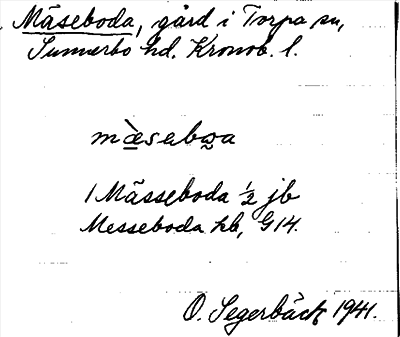 Mäseboda, gård i Torpa sn,
Sunnerbo hd. Kronob. l.
mæ̀saboa
1 Mässeboda 1/2 jb
Messeboda hb, G14.
O. Segerbäck 1941.